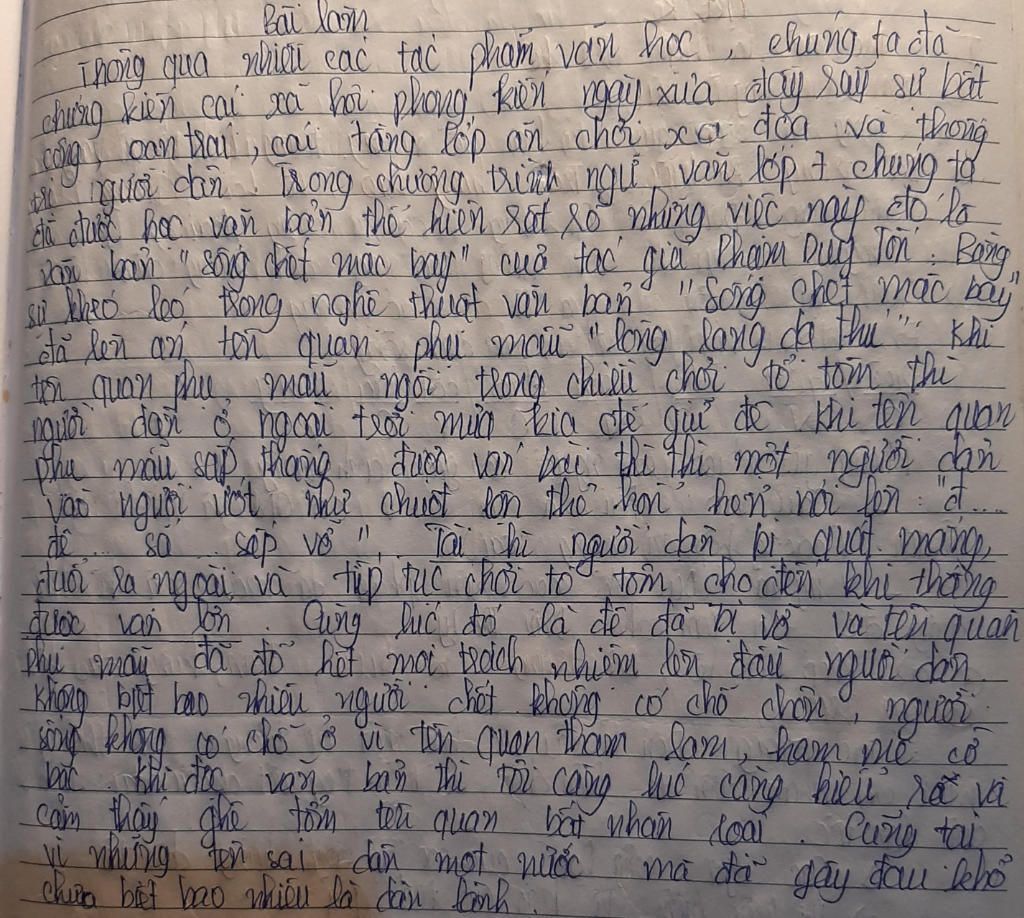 Bài làm
Thông qua nhiều các tác phẩm văn học, chúng ta đã
chứng kiến cái xã hội phong kiến ngày xưa đầy rẫy sự bất
công, oan trái, cái tầng lớp ăn chơi xa đọa và thống
trị người dân. Trong chương trình ngữ văn lớp 7 chúng ta
đã được học văn bản thể hiện rất rõ những việc này đó là
văn bản "sống chết mặc bay" của tác giả Phạm Duy Tốn. Bằng
sự khéo léo trong nghệ thuật văn bản "Sống chết mặc bay"
đã lên án tên quan phụ mẫu "lòng lang dạ thú". Khi
tên quan phụ mẫu ngồi trong chiếu chơi tổ tôm thì
người dân ở ngoài trời mưa kia để giữ đê khi tên quan
phụ mẫu sắp thắng được ván bài thì thì một người dân
vào người ướt như chuột lột thở hổn hển nói lên: "đ....
đê... sạ.. sắp vỡ". Tại hì người dân bị quát mắng,
đuổi ra ngoài và tiếp tục chơi tổ tôm cho đến khi thắng
được ván lớn. Cùng lúc đó là đê đã bị vỡ và tên quan
phụ mẫu đã đổ hết mọi trách nhiệm lên đầu người dân.
không biết bao nhiêu người chết không có chỗ chôn, người
sống không có chỗ ở vì tên quan tham lam, ham mê cờ
bạc. Khi đọc văn bản thì tôi càng lúc càng hiểu rõ và
cảm thấy ghê tởm tên quan bất nhân loại. Cũng tại
vì những tên sai dân một nước mà đã gây đau khổ
chưa biết bao nhiêu là dân lành.